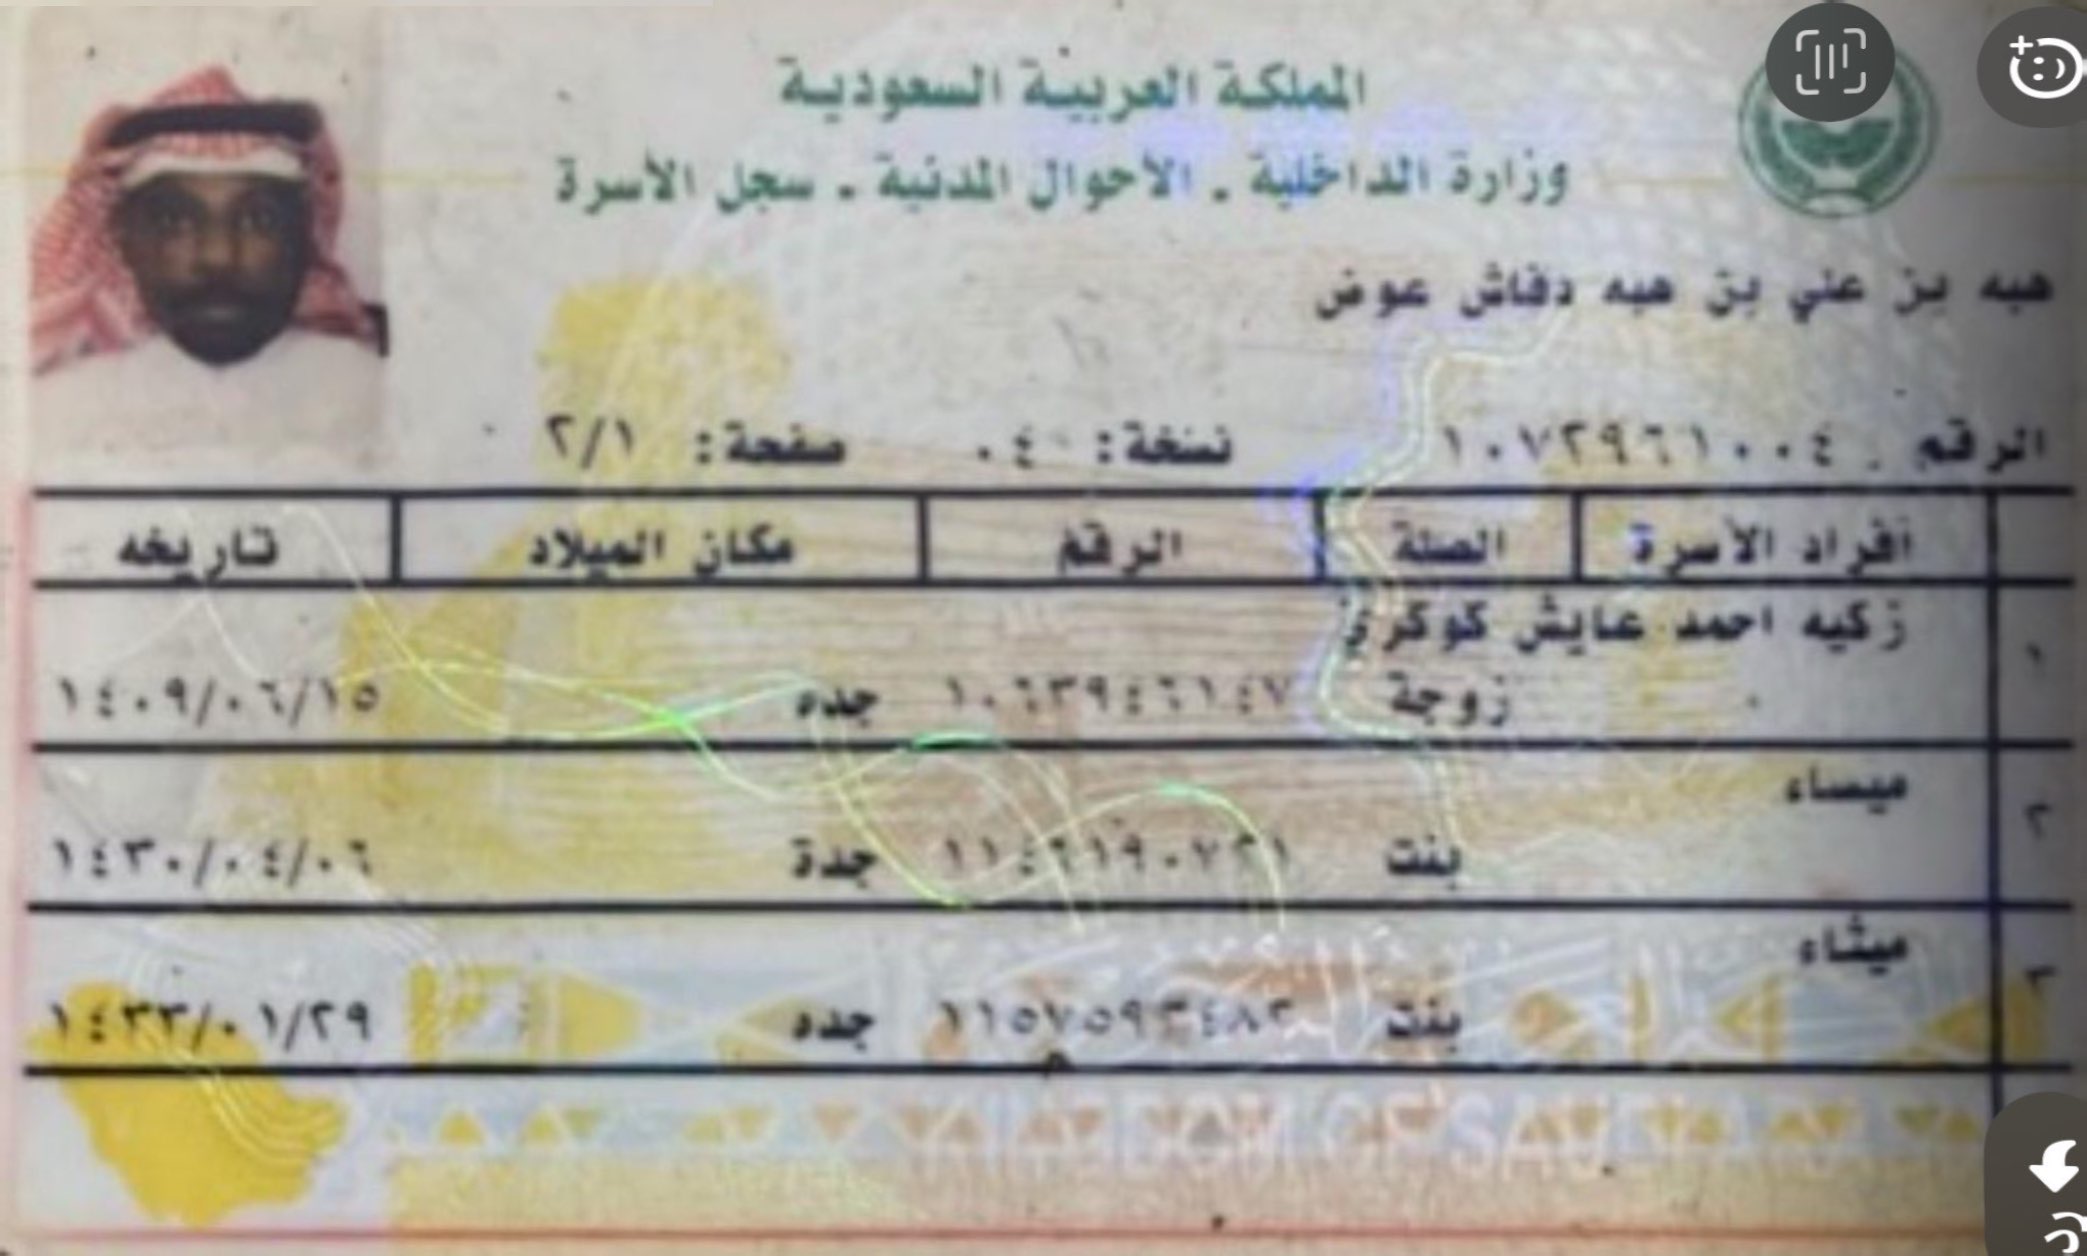 المملكة العربية السعودية
وزارة الداخلية . الأحوال المدنية . سجل الأسرة
هبه بن علي بن هبه دقاش عوض
الرقم . ١٠٧٢٩٦١٠٠٤ نسخة: ٠٤ صفحة: ٢/١
أفراد الأسرة الصلة الرقم مكان الميلاد تاريخه
١ زكيه احمد عايش كوكري
زوجة ١٠٦٣٩٤٦١٤٧ جده ١٤٠٩/٠٦/١٥
٢ ميساء
بنت جدة ١٤٣٠/٠٤/٠٦
٣ ميثاء
بنت جده ١٤٣٣/٠١/٢٩
KINGDOM OF SAUDI ARABIA